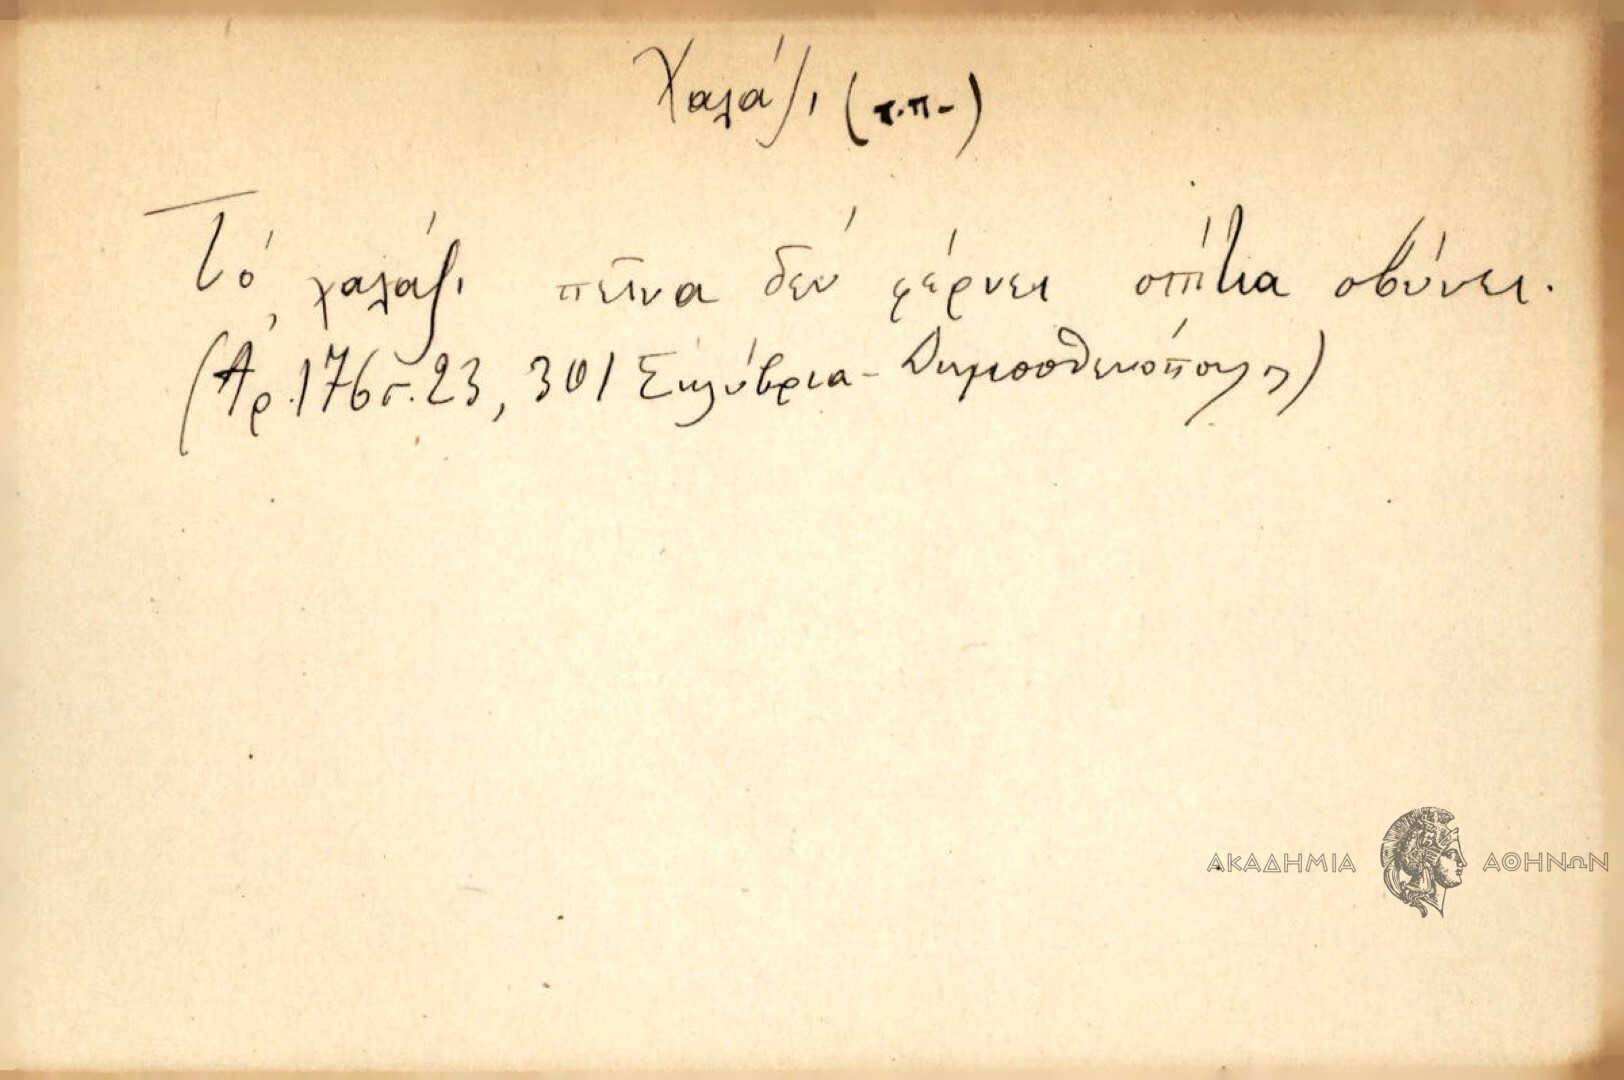 Χαλάζι (τ.π-)
Τό χαλάζι πεῖνα δέν φέρνει σπίτια σβύνει.
(Ἀρ. 176 σ. 23, 301 Σηλύβρια - Δημοσθενόπουλο)
ΑΚΑΔΗΜΙΑ ΑΘΗΝΩΝ